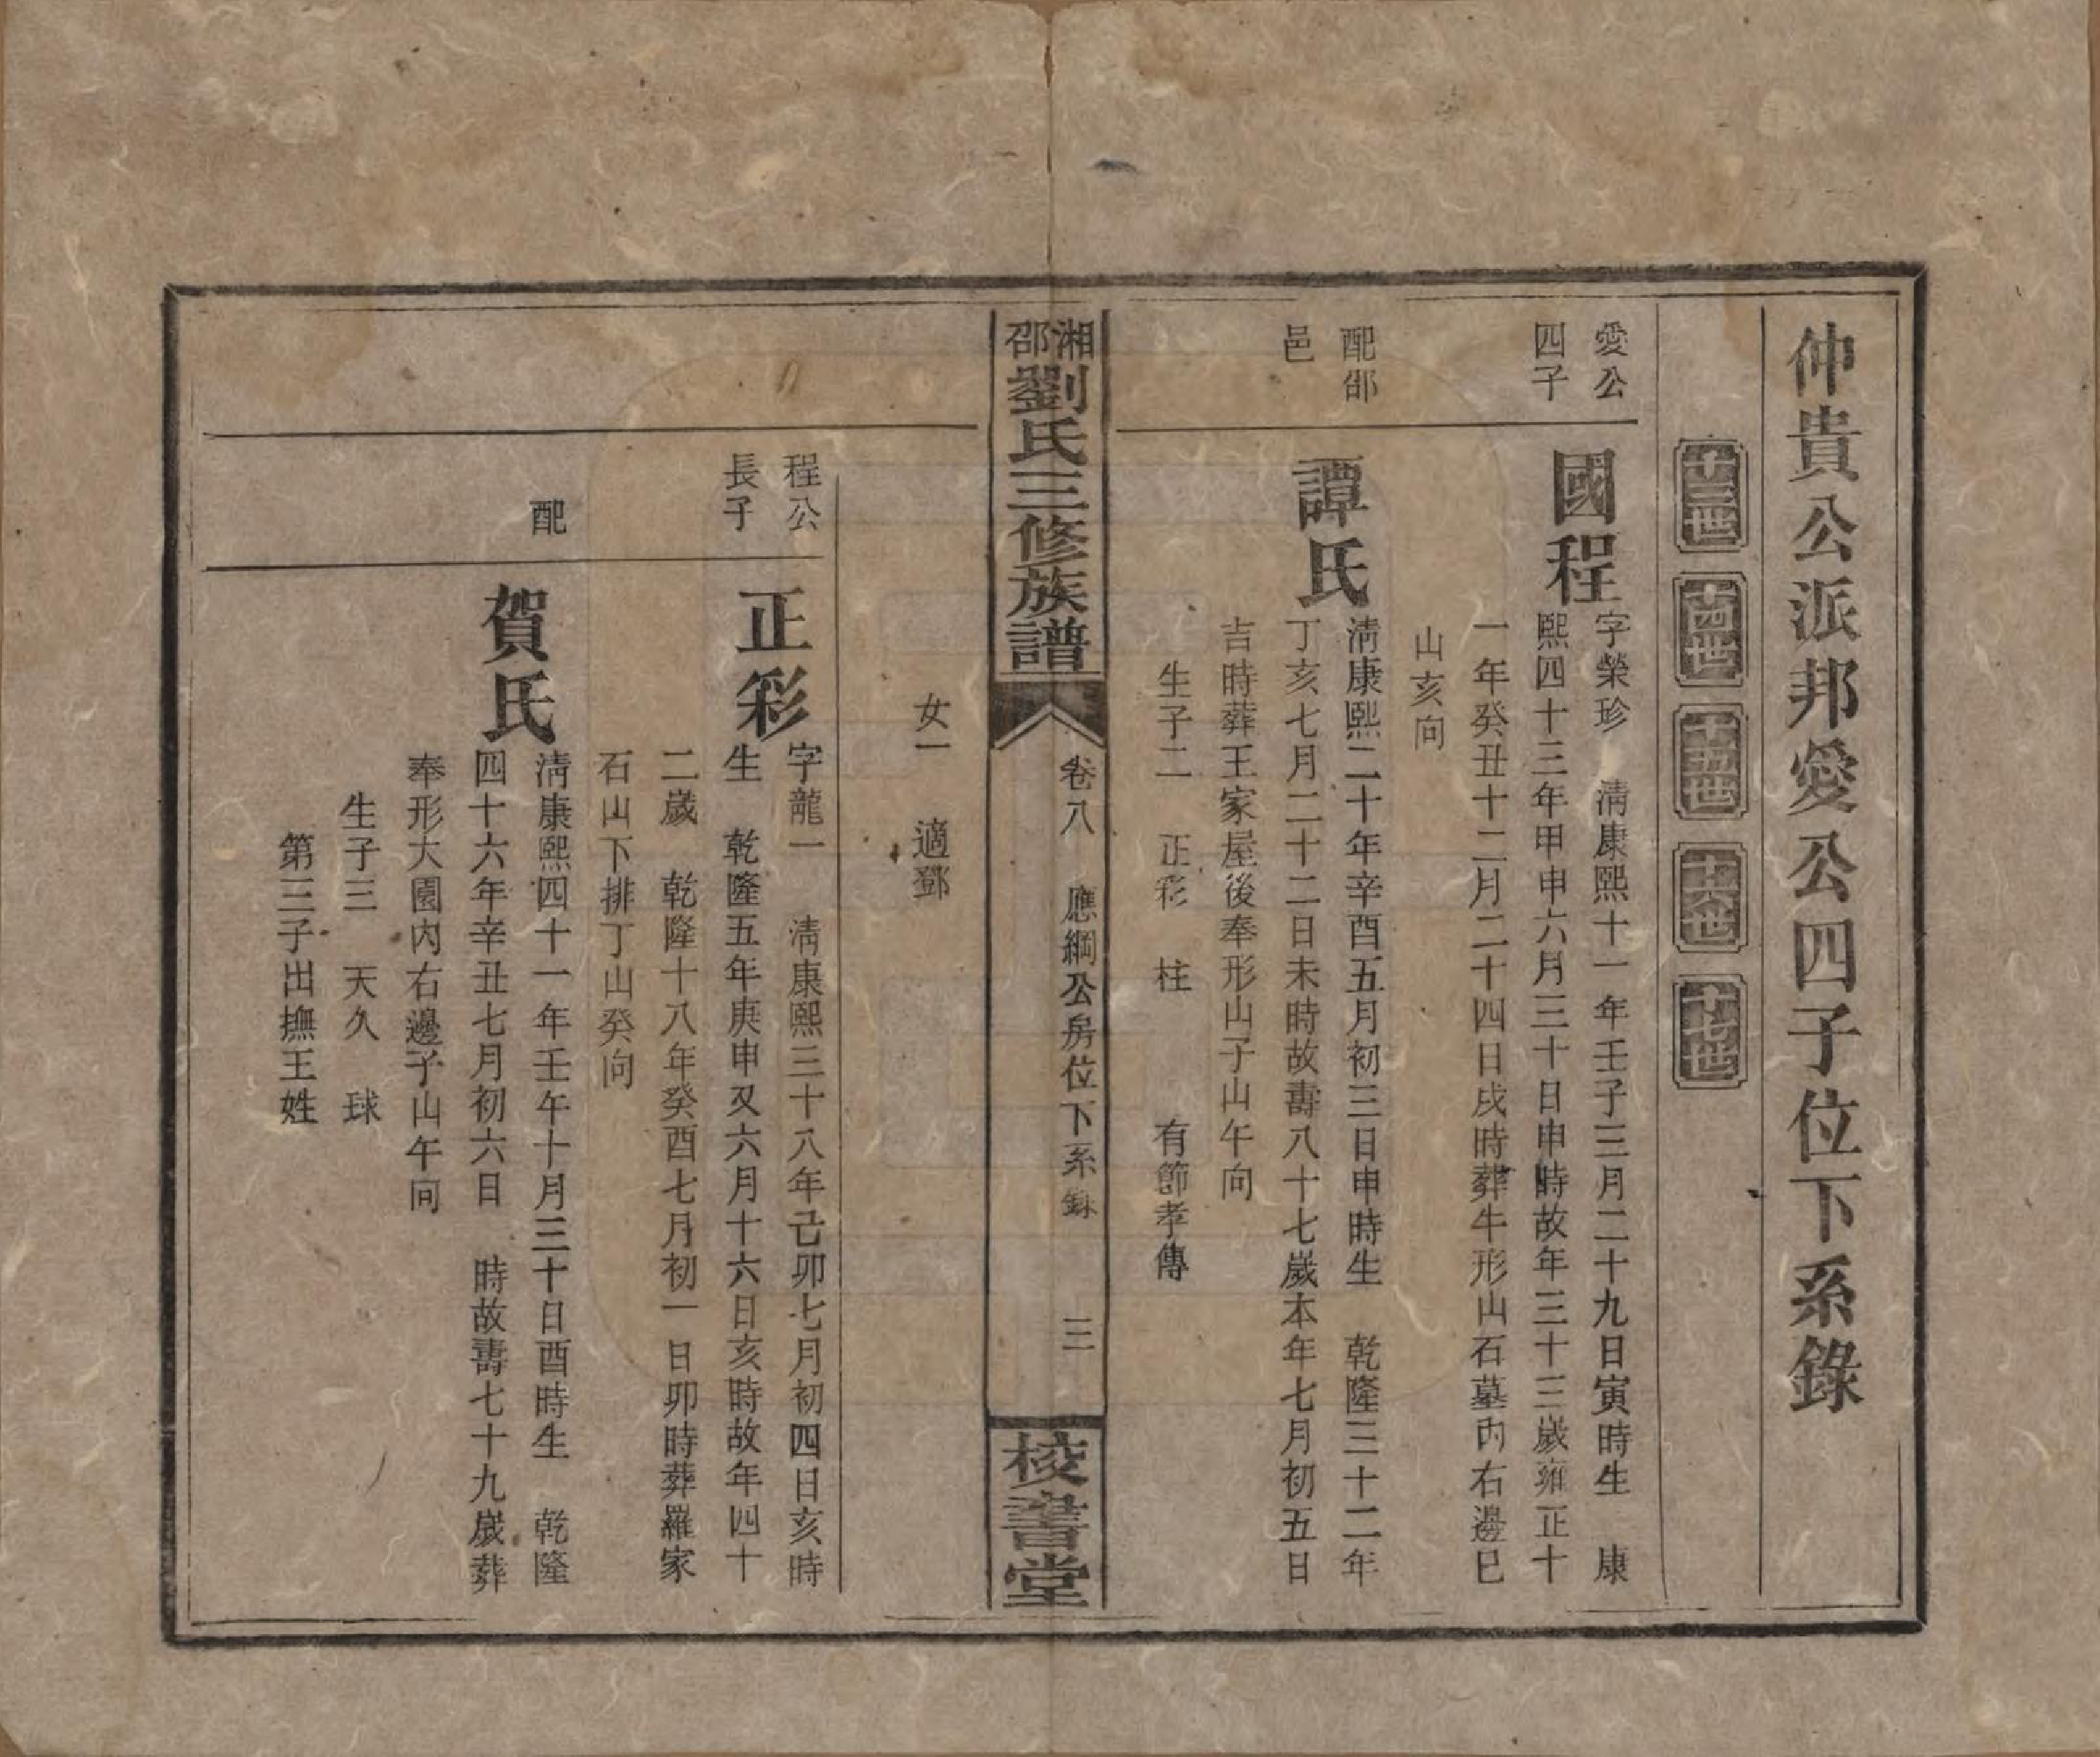 仲貴公派邦愛公四子位下系錄
十三世
十四世
十五世
十六世
十七世
愛公
四子
國程
字榮珍　清康熙十一年壬子三月二十九日寅時生　康
熙四十三年甲申六月三十日申時故年三十三歲雍正十
一年癸丑十二月二十四日戌時葬牛形山石墓內右邊巳
山亥向
配邵
邑
譚氏
清康熙二十年辛酉五月初三日申時生　乾隆三十二年
丁亥七月二十二日未時故壽八十七歲本年七月初五日
吉時葬王家屋後奉形山子山午向
生子二　正彩　柱　　　有節孝傳
湘邵劉氏三修族譜
卷八　應綱公房位下系錄　　三
校書堂
女一　適鄧
程公
長子
正彩
字龍一　清康熙三十八年己卯七月初四日亥時
生　乾隆五年庚申又六月十六日亥時故年四十
二歲　乾隆十八年癸酉七月初一日卯時葬羅家
石山下排丁山癸向
配
賀氏
清康熙四十一年壬午十月三十日酉時生　乾隆
四十六年辛丑七月初六日　時故壽七十九歲葬
奉形大園內右邊子山午向
生子三　天久　球
第三子出撫王姓